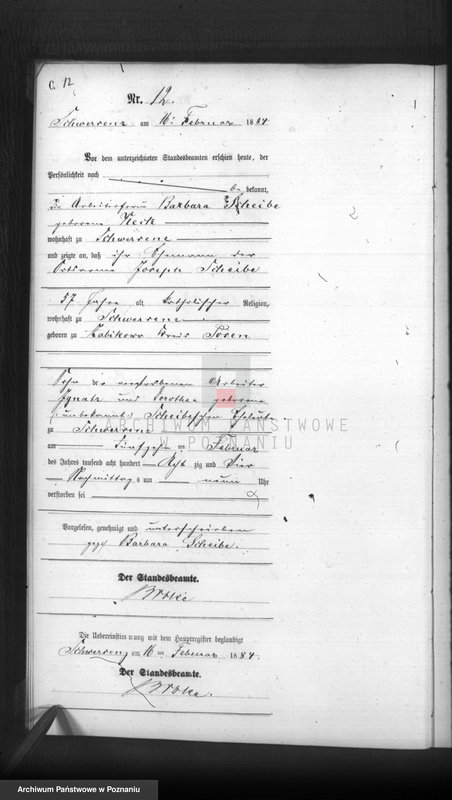 C. 12
Nr. 12.
Schwersenz am 16ten Februar 1884
Vor dem unterzeichneten Standesbeamten erschien heute, der
Persönlichkeit nach
be kannt,
die Arbeiterfrau Barbara Scheibe
geborene
wohnhaft zu Schwersenz
und zeigte an, daß ihr Ehemann der
Joseph Scheibe
57 Jahre alt, katholischer Religion,
wohnhaft zu Schwersenz
geboren zu Zabikowo Kreis Posen
Sohn der verstorbenen Arbeiter
Ignatz und Dorothea geborene
(unbekannt) Scheibeschen Eheleute
zu Schwersenz
am fünfzehn ten Februar
des Jahres tausend acht hundert acht zig und vier
Nachmittags um neun Uhr
verstorben sei
Vorgelesen, genehmigt und unterschrieben
gez. Barbara Scheibe.
Der Standesbeamte.
Die Uebereinstimmung mit dem Hauptregister beglaubigt
Schwersenz am 16 ten Februar 1884.
Der Standesbeamte.
ARCHIWUM PAŃSTWOWE
W POZNANIU
Archiwum Państwowe w Poznaniu